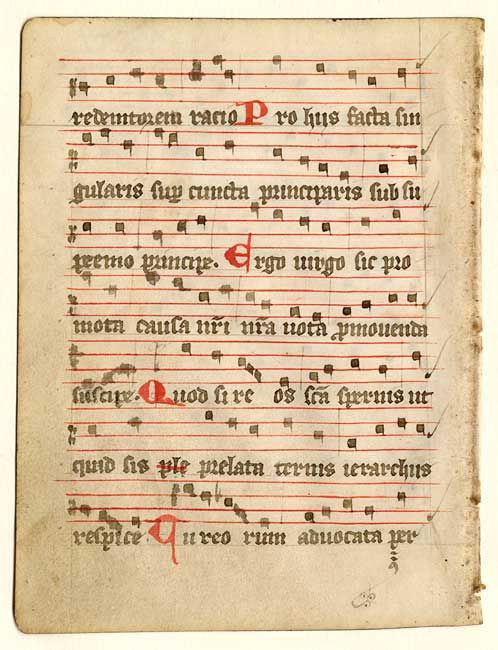 redemtorem racio Pro hijs facta sin
gularis sup cuncta principaris sub su
premo principe. Ergo virgo sic pro
mota causa nrī nrā vota ꝓmovenda
suscipe. Quod si re os scā spernis ut
quid sis ple prelata ternis ierarchijs
respice Qu reo rum advocata per